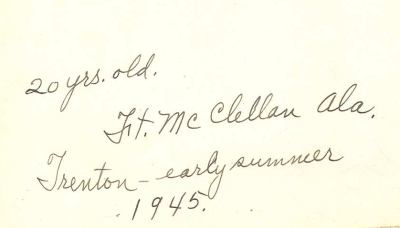 20 yrs. old.
Ft. Mc Clellan Ala.
Trenton - early summer
1945.